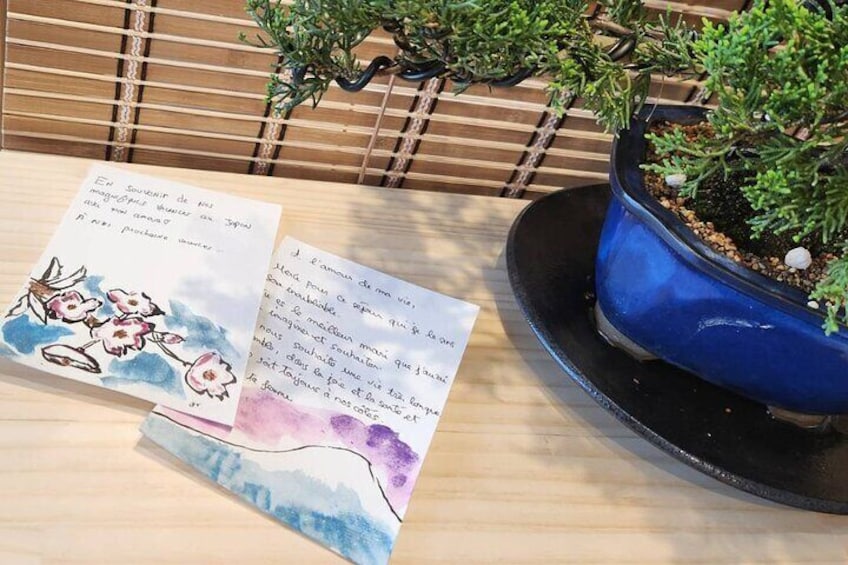 En souvenir de nos
magnifiques vacances au Japon
avec mon amour
À nos prochaines
À l'amour de ma vie,
Merci pour ce séjour qui je le sens
sera inoubliable.
es le meilleur mari que j'aurai
imaginer et souhaiter.
nous souhaite une vie très longue
dans la joie et la santé et
toujours à nos côtés
femme